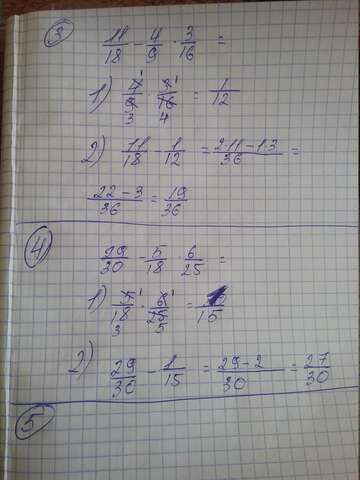 3
11/18 - 4/9 · 3/16 =
1) 4/9 · 3/16 = 1/12
1 1
3 4
2) 11/18 - 1/12 = 2·11-1·3/36 =
22-3/36 = 19/36
4
29/30 - 5/18 · 6/25 =
1) 5/18 · 6/25 = 1/15
1 1
3 5
2) 29/30 - 1/15 = 29-2/30 = 27/30
5